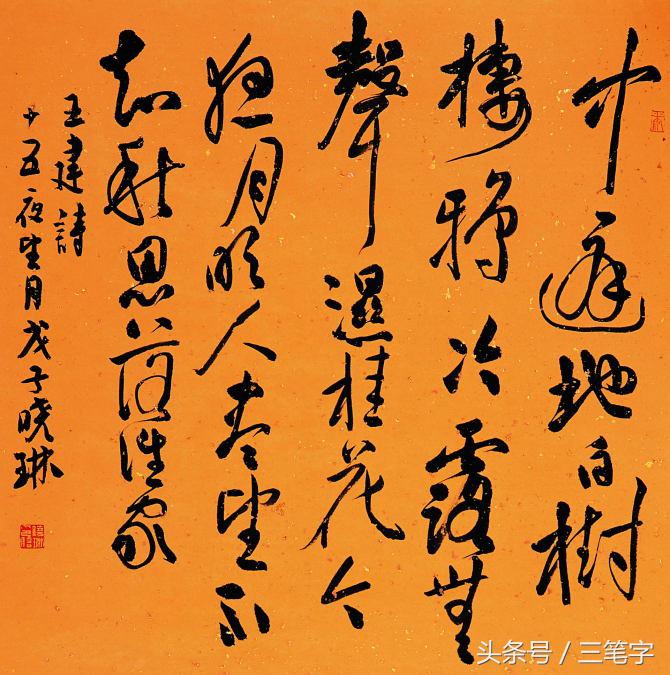 中庭地白樹
棲鴉冷露無
聲濕桂花今
夜月明人盡望不
知秋思落誰家
王建詩
十五夜望月戊子晓琳
头条号 / 三笔字